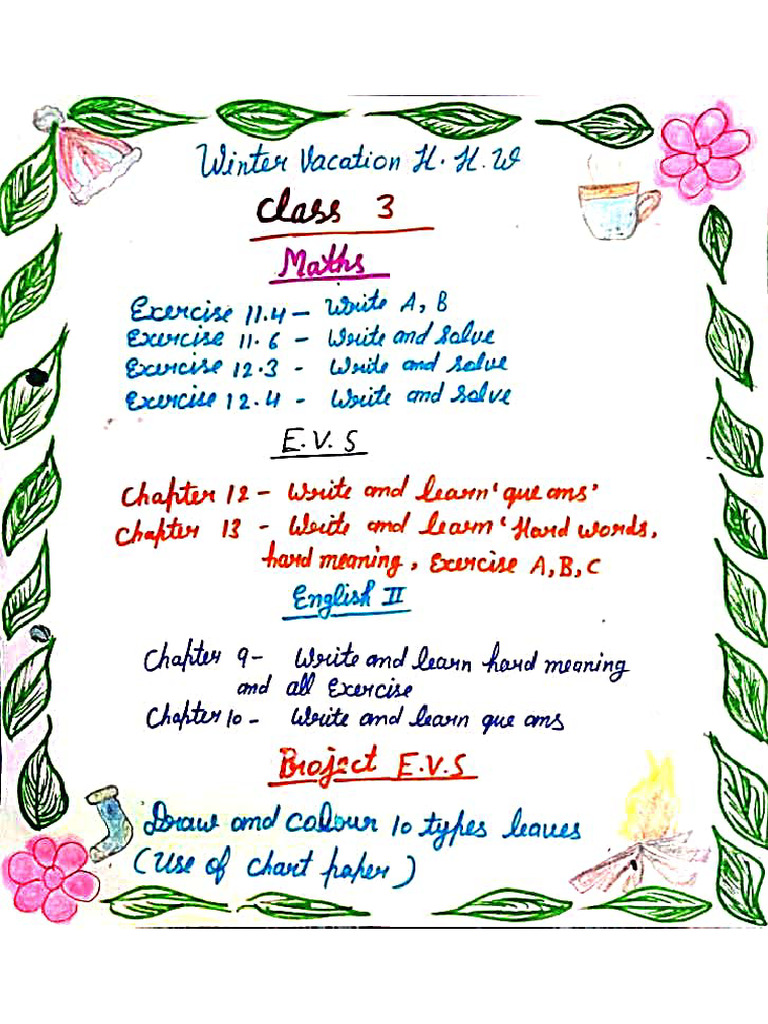 Winter Vacation H.H.W
Class 3
Maths
Exercise 11.4 – Write A, B
Exercise 11.6 – Write and solve
Exercise 12.3 - Write and solve
Exercise 12.4 - Write and solve
E.V.S
Chapter 12 - Write and learn 'que ans'
Chapter 13 - Write and learn 'Hard words,
hard meaning, Exercise A, B, C
English II
Chapter 9 - Write and learn hard meaning
and all Exercise
Chapter 10 - Write and learn que ans
Project E.V.S
Draw and colour 10 types leaves
(Use of chart paper)